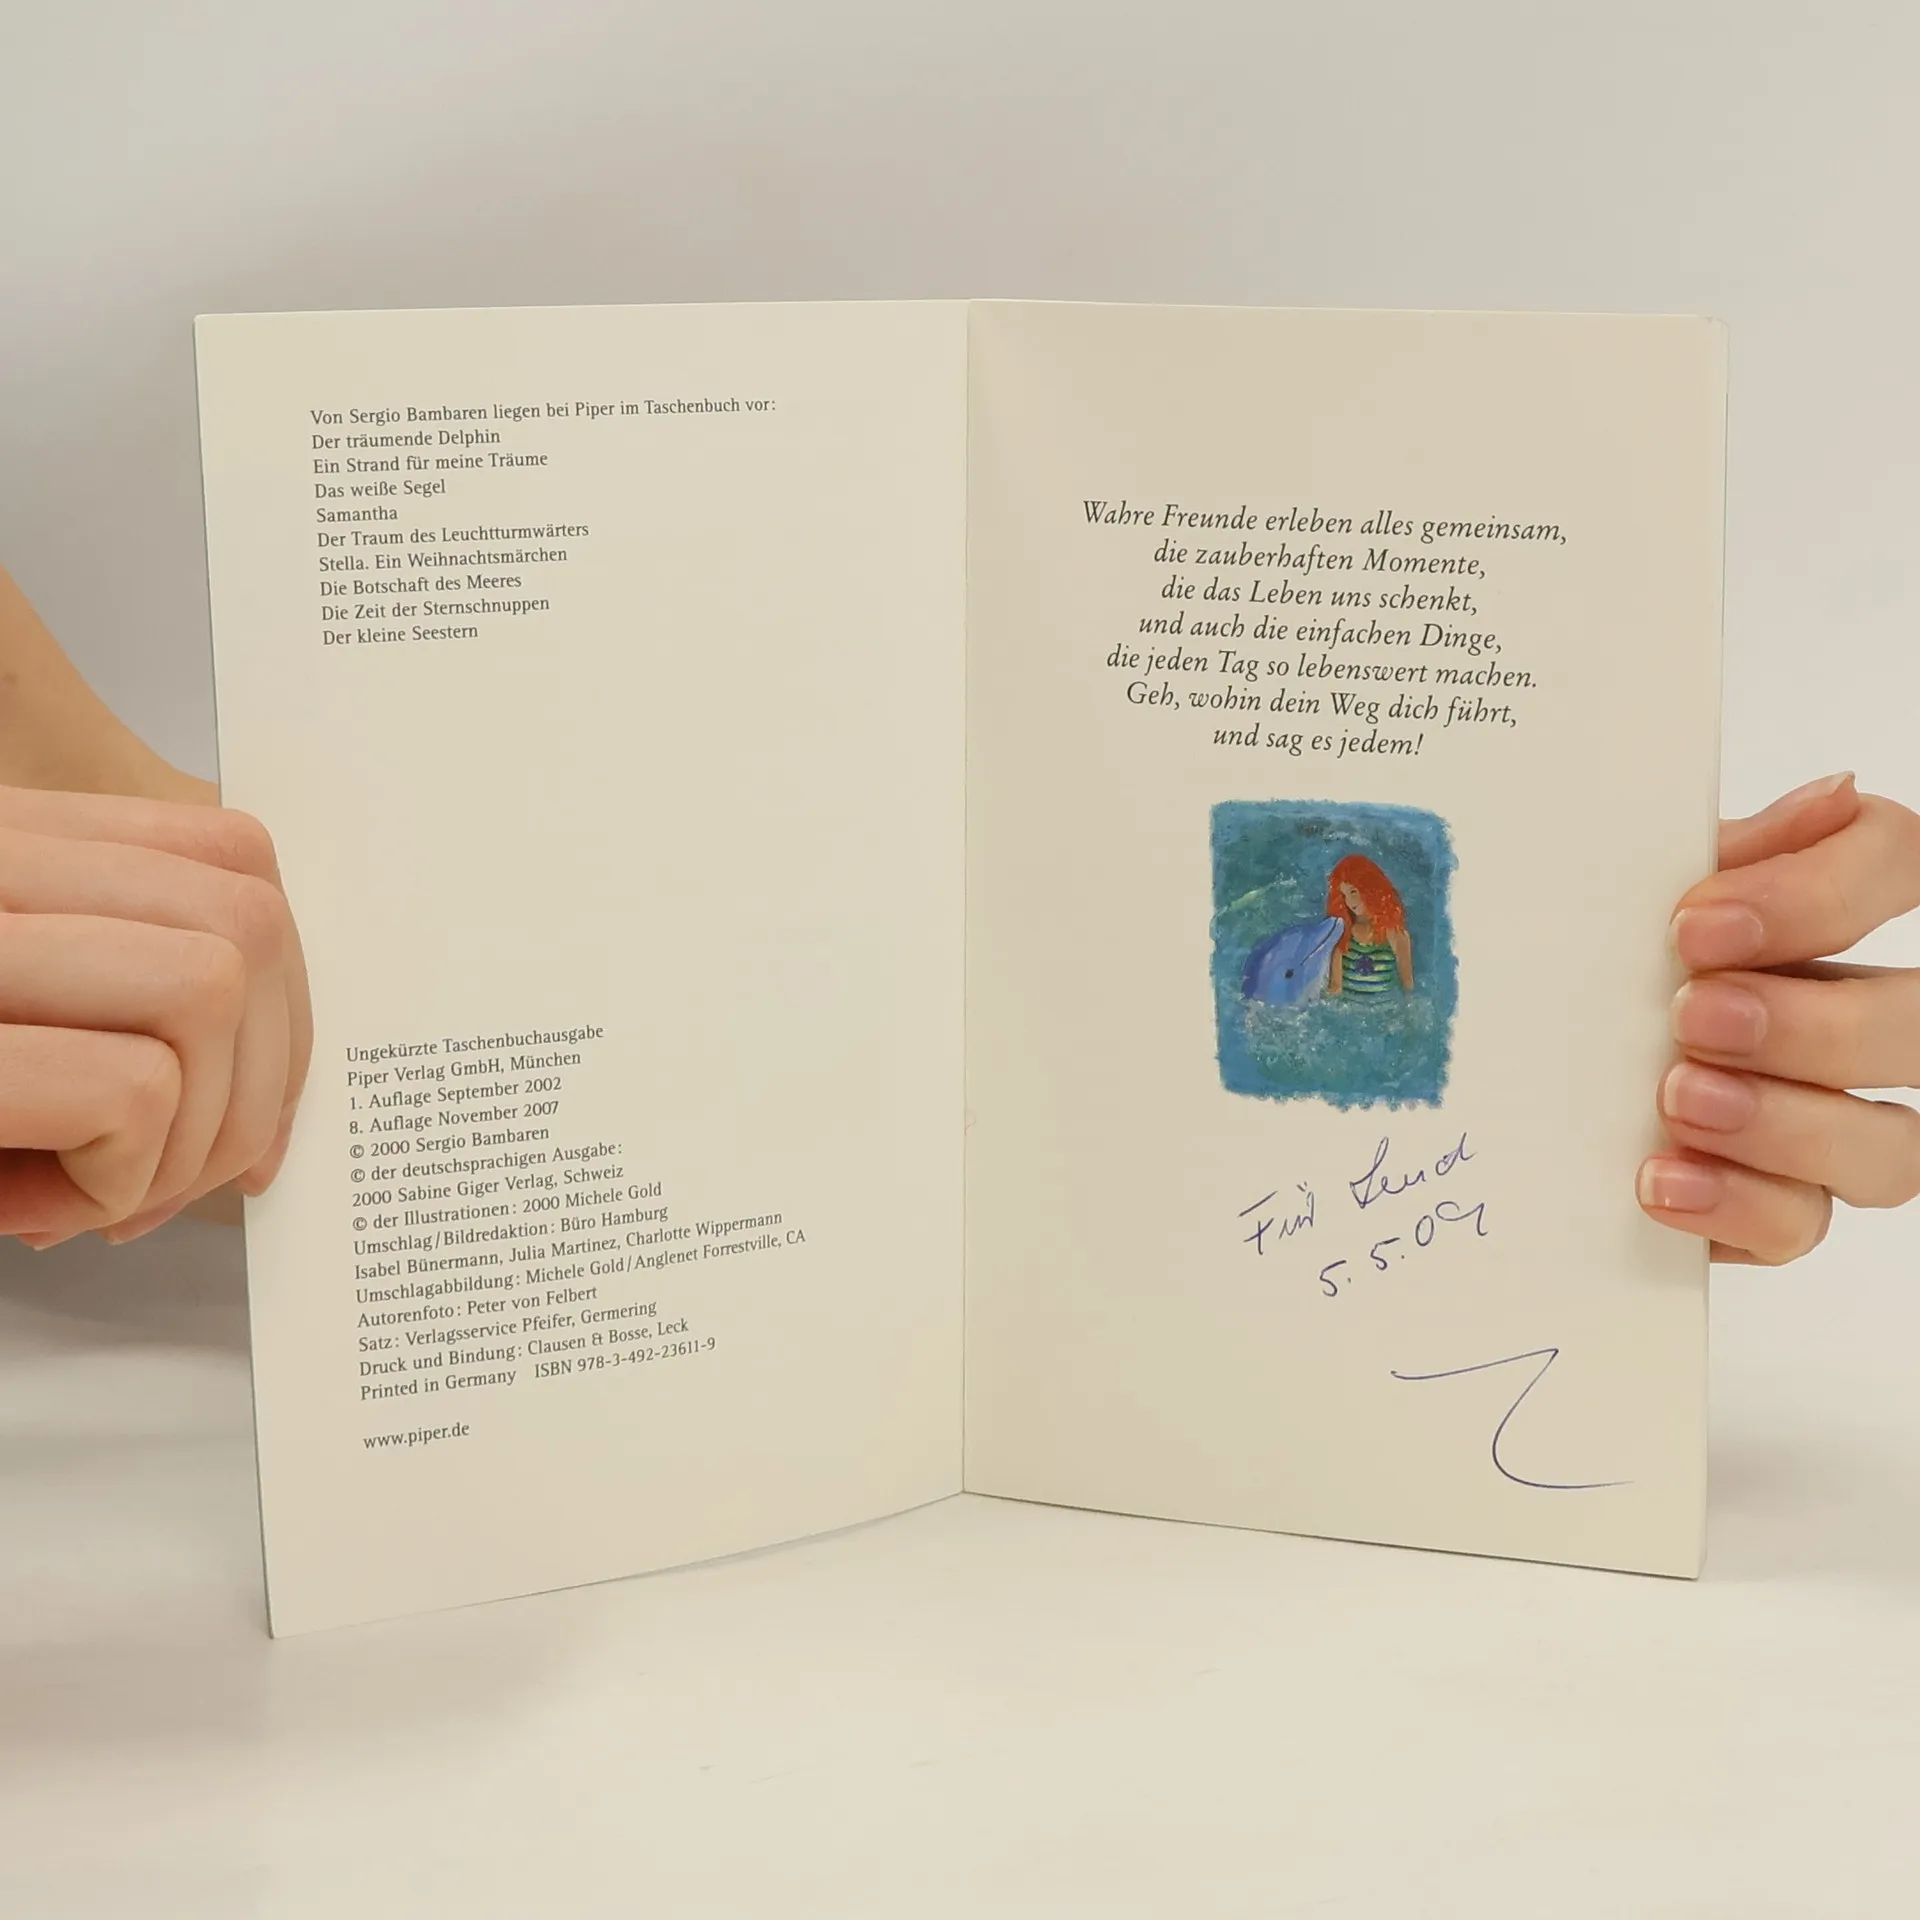 Von Sergio Bambaren liegen bei Piper im Taschenbuch vor:
Der träumende Delphin
Ein Strand für meine Träume
Das weiße Segel
Samantha
Der Traum des Leuchtturmwärters
Stella. Ein Weihnachtsmärchen
Die Botschaft des Meeres
Die Zeit der Sternschnuppen
Der kleine Seestern
Ungekürzte Taschenbuchausgabe
Piper Verlag GmbH, München
1. Auflage September 2002
8. Auflage November 2007
© 2000 Sergio Bambaren
© der deutschsprachigen Ausgabe:
2000 Sabine Giger Verlag, Schweiz
© der Illustrationen: 2000 Michele Gold
Umschlag/Bildredaktion: Büro Hamburg
Isabel Bünermann, Julia Martinez, Charlotte Wippermann
Umschlagabbildung: Michele Gold/Anglenet Forrestville, CA
Autorenfoto: Peter von Felbert
Satz: Verlagsservice Pfeifer, Germering
Druck und Bindung: Clausen & Bosse, Leck
Printed in Germany ISBN 978-3-492-23611-9
www.piper.de
Wahre Freunde erleben alles gemeinsam,
die zauberhaften Momente,
die das Leben uns schenkt,
und auch die einfachen Dinge,
die jeden Tag so lebenswert machen.
Geh, wohin dein Weg dich führt,
und sag es jedem!
Für
5.5.09